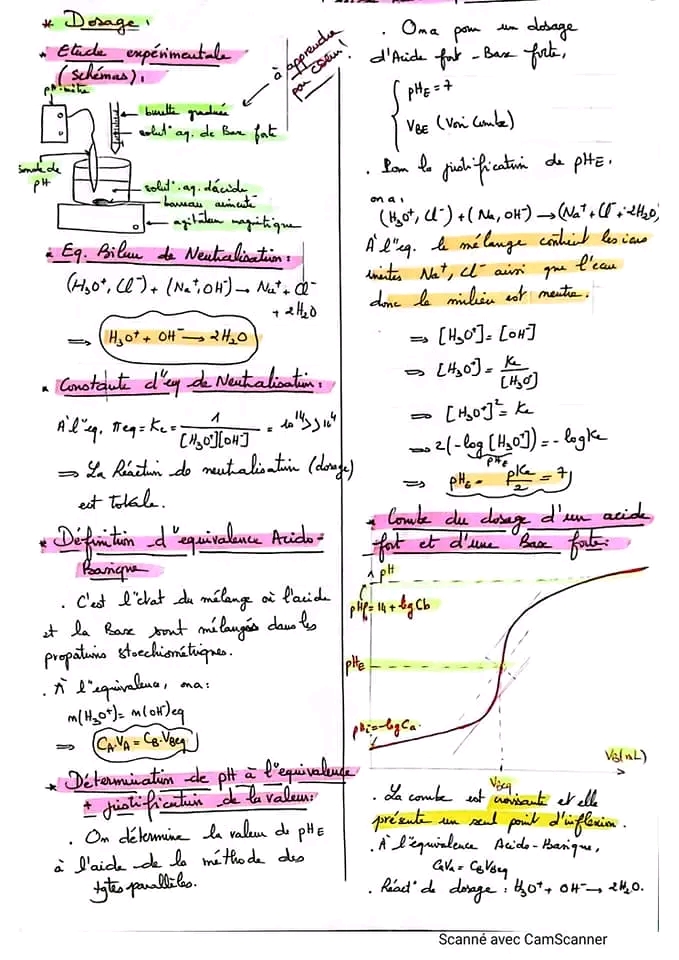 * Dosage :
* Etude expérimentale
(schémas) :
à apprendre
par coeur !
pH-mètre
burette graduée
solut° aq. de Base forte
sonde de
pH
solut° aq. d'acide
barreau aimanté
agitateur magnétique
* Eq. Bilan de Neutralisation :
(H3O+, Cl-) + (Na+, OH-) → Na+ + Cl-
+ 2H2O
⇒ H3O+ + OH- → 2H2O
* Constante d'"eq de Neutralisation :
A l'"eq, πeq = Kc = 1/[H3O+][OH-] = 10^14 >> 10^4
⇒ La Réaction de neutralisation (dosage)
est totale.
* Définition d'"equivalence Acido-
Basique
. C'est l'"état du mélange où l'acide
et la Base sont mélangés dans les
propotions stoechiométriques.
. À l'"equivalence, on a :
n(H3O+) = n(OH-)eq
⇒ CA.VA = CB.VBeq
* Détermination de pH à l'"equivalence
+ justification de la valeur :
. On détermine la valeur de pHE
à l'aide de la méthode des
tgtes parallèles.
. On a pour un dosage
d'Acide fort - Base forte,
pHE = 7
VBE (Voir Courbe)
. Pour la justification de pHE,
on a :
(H3O+, Cl-) + (Na, OH-) → (Na+ + Cl- + 2H2O)
À l'"eq. le mélange contient les ions
inertes Na+, Cl- ainsi que l'eau
donc le milieu est neutre.
⇒ [H3O+] = [OH-]
⇒ [H3O+] = Ke/[H3O+]
⇒ [H3O+]² = Ke
→ 2(-log[H3O+]) = -logKe
pHE
⇒ pHE = pKe/2 = 7
* Courbe du dosage d'un acide
fort et d'une Base forte :
pH
pHf = 14 + log Cb
pHE
pHi = -log Ca
VBeq
VB(mL)
. La courbe est croissante et elle
présente un seul point d'inflexion.
. À l'équivalence Acido-Basique,
CaVa = CBVBeq
. Réact° de dosage : H3O+ + OH- → 2H2O.
Scanné avec CamScanner